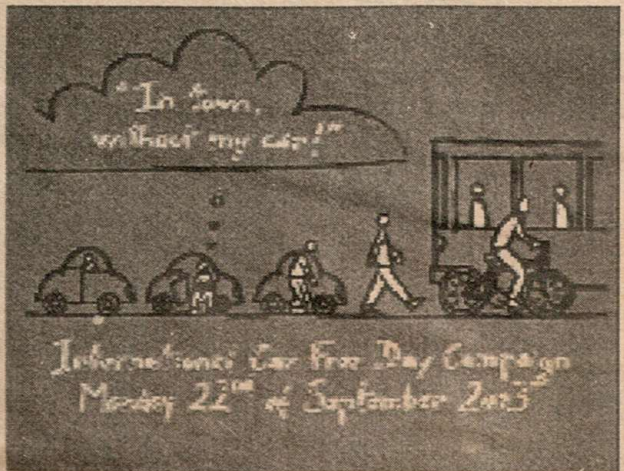 "In town,
without my car!"
International Car Free Day Campaign
Monday 22nd of September 2003